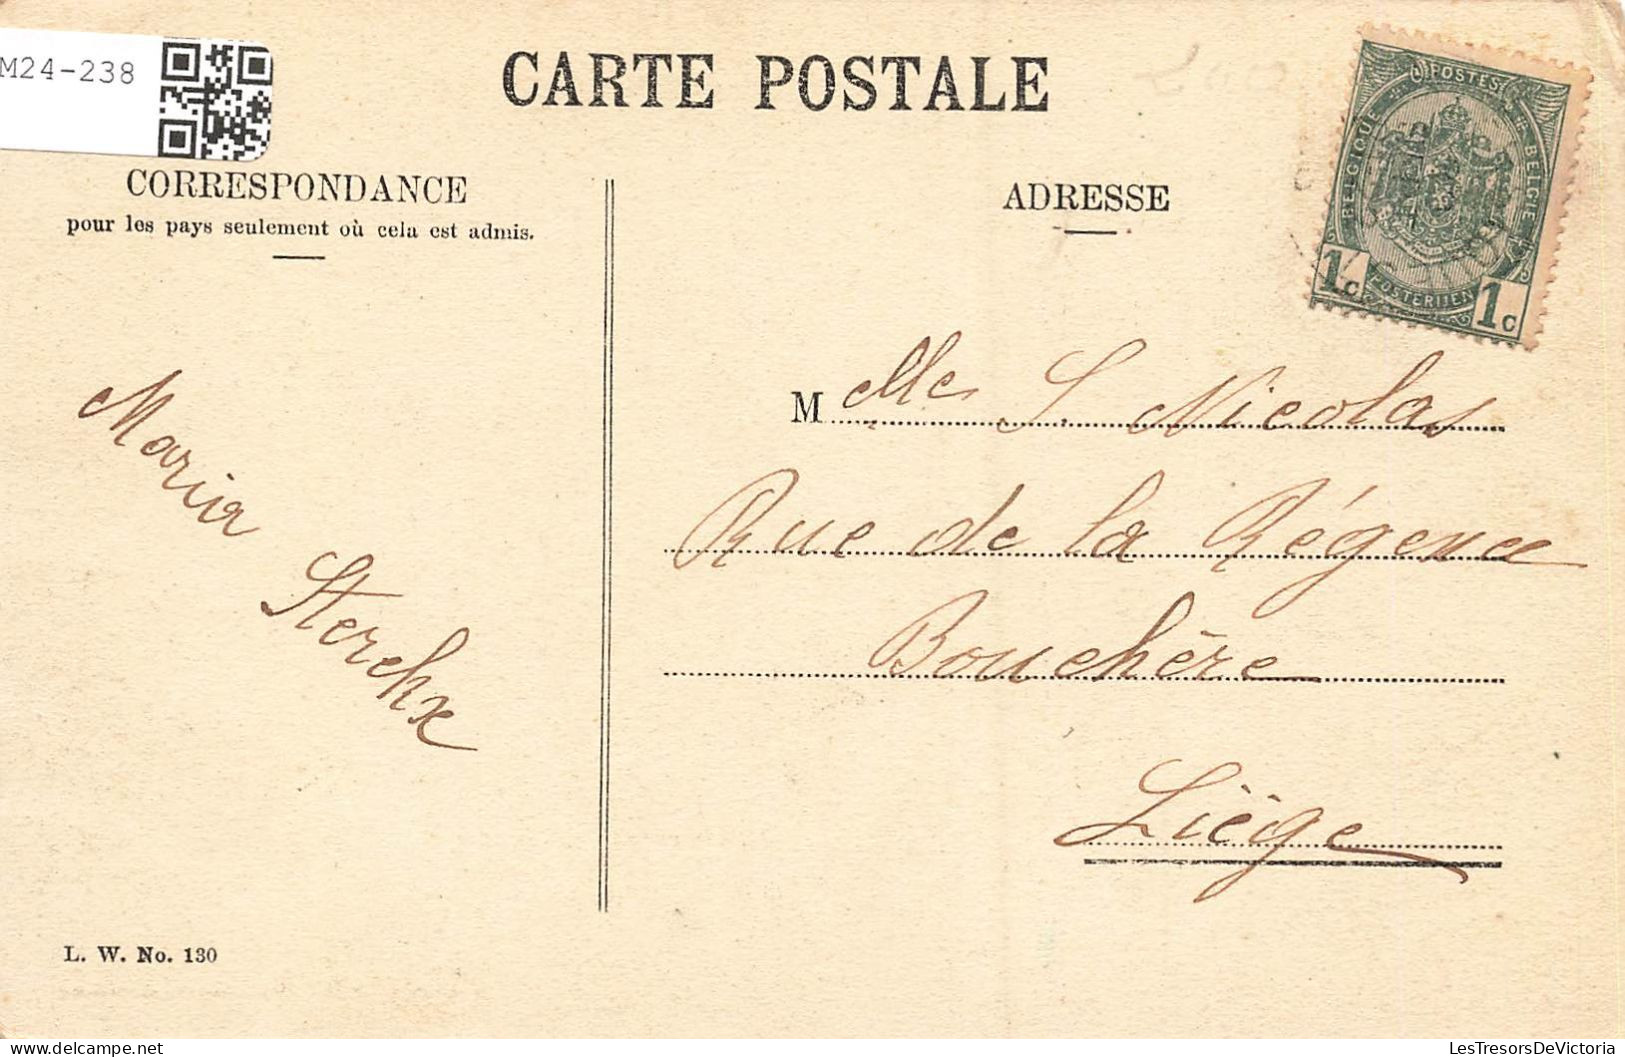 M24-238
CARTE POSTALE
CORRESPONDANCE
pour les pays seulement où cela est admis.
ADRESSE
POSTES
BELGIQUE
BELGIE
POSTERIJEN
1c
1c
Melle S. Nicolas
Rue de la Régence
Bouchère
Liège
Maria Sterckx
L. W. No. 130
LesTresorsDeVictoria
delcampe.net